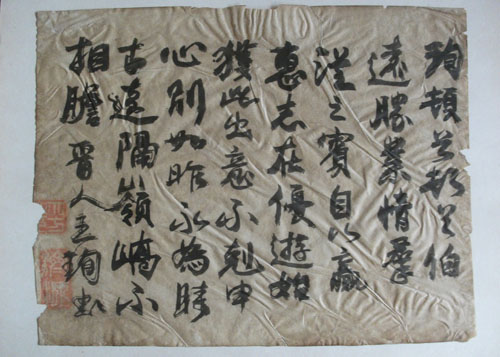 珣頓首頓首伯
遠勝業情羣
從之寶自以羸
患志在優遊始
獲此出意不剋申
分別如昨永為疇
古遠隔嶺嶠不
相瞻 晉人王珣書